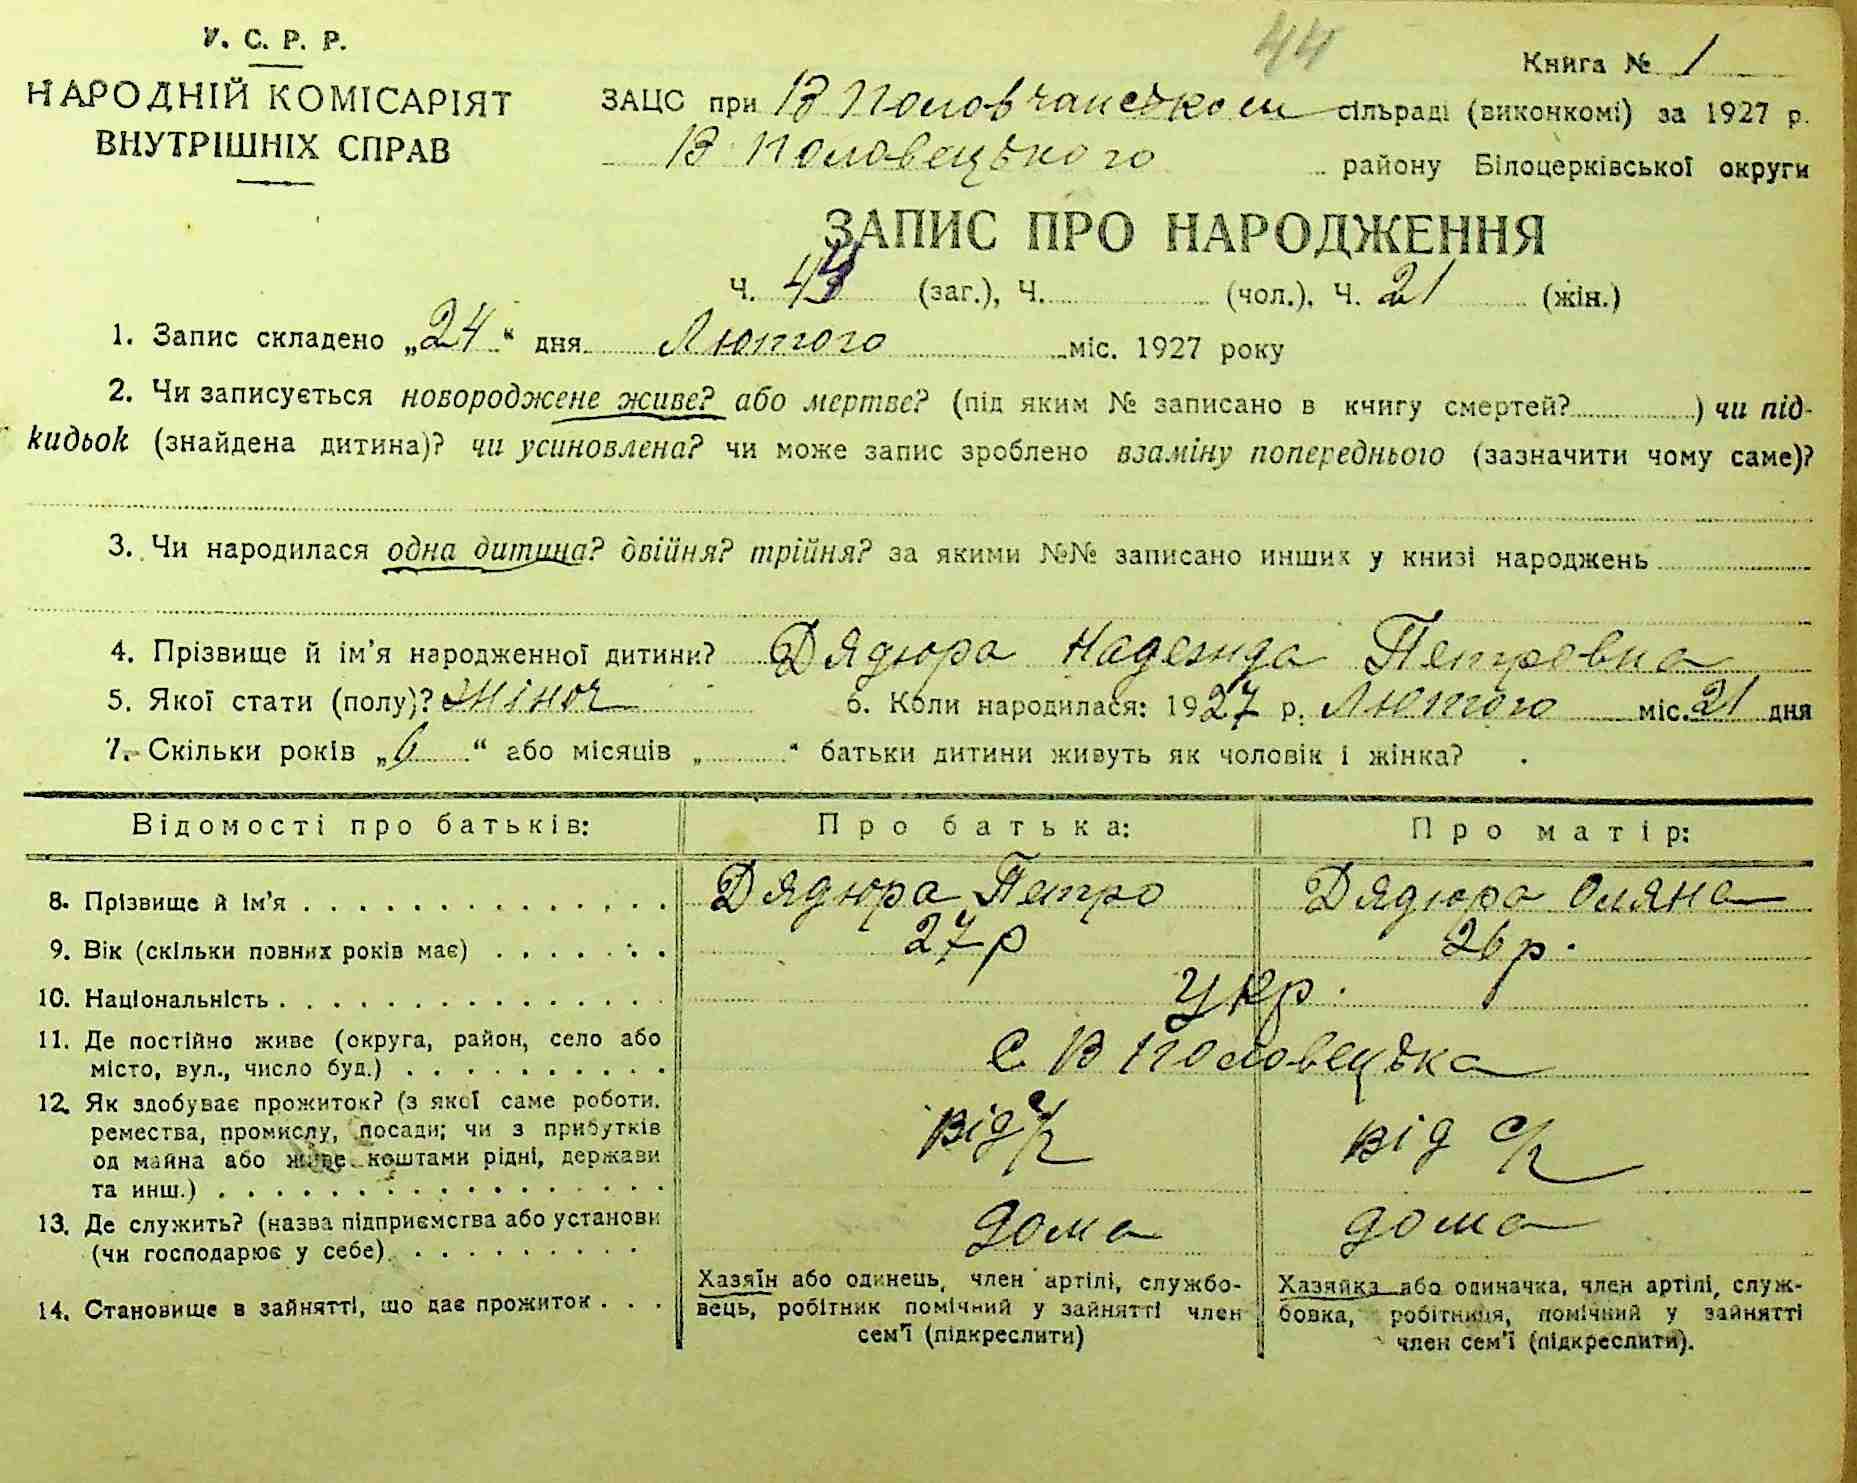 У. С. Р. Р.
НАРОДНІЙ КОМІСАРІЯТ
ВНУТРІШНІХ СПРАВ
44
Книга № 1
ЗАЦС при В Половчанськом сільраді (виконкомі) за 1927 р.
В Половецького району Білоцерківської округи
ЗАПИС ПРО НАРОДЖЕННЯ
Ч. 44 (заг.), Ч. (чол.), Ч. 21 (жін.)
1. Запис складено „24“ дня Лютого міс. 1927 року
2. Чи записується новороджене живе? або мертве? (під яким № записано в книгу смертей? ) чи під-
кидьок (знайдена дитина)? чи усиновлена? чи може запис зроблено взаміну попереднього (зазначити чому саме)?
3. Чи народилася одна дитина? двійня? трійня? за якими №№ записано инших у книзі народжень
4. Прізвище й ім'я народженної дитини? Дядюра Надежда Петровна
5. Якої стати (полу)? жіноч 6. Коли народилася: 1927 р. Лютого міс. 21 дня
7. Скільки років „6“ або місяців „ “ батьки дитини живуть як чоловік і жінка?
Відомості про батьків: Про батька: Про матір:
8. Прізвище й ім'я Дядюра Петро Дядюра Оляна
9. Вік (скільки повних років має) 27 р 26 р.
10. Національність Укр.
11. Де постійно живе (округа, район, село або
місто, вул., число буд.) С. В Половецька
12. Як здобуває прожиток? (з якої саме роботи,
ремества, промислу, посади; чи з прибутків
од майна або живе коштами рідні, держави
та инш.) від с/г від с/г
13. Де служить? (назва підприємства або установи
(чи господарює у себе). дома дома
14. Становище в зайнятті, що дає прожиток
Хазяїн або одинець, член артілі, службо-
вець, робітник помічний у зайнятті член
сем'ї (підкреслити)
Хазяйка або одиначка, член артілі, служ-
бовка, робітниця, помічний у зайнятті
член сем'ї (підкреслити).